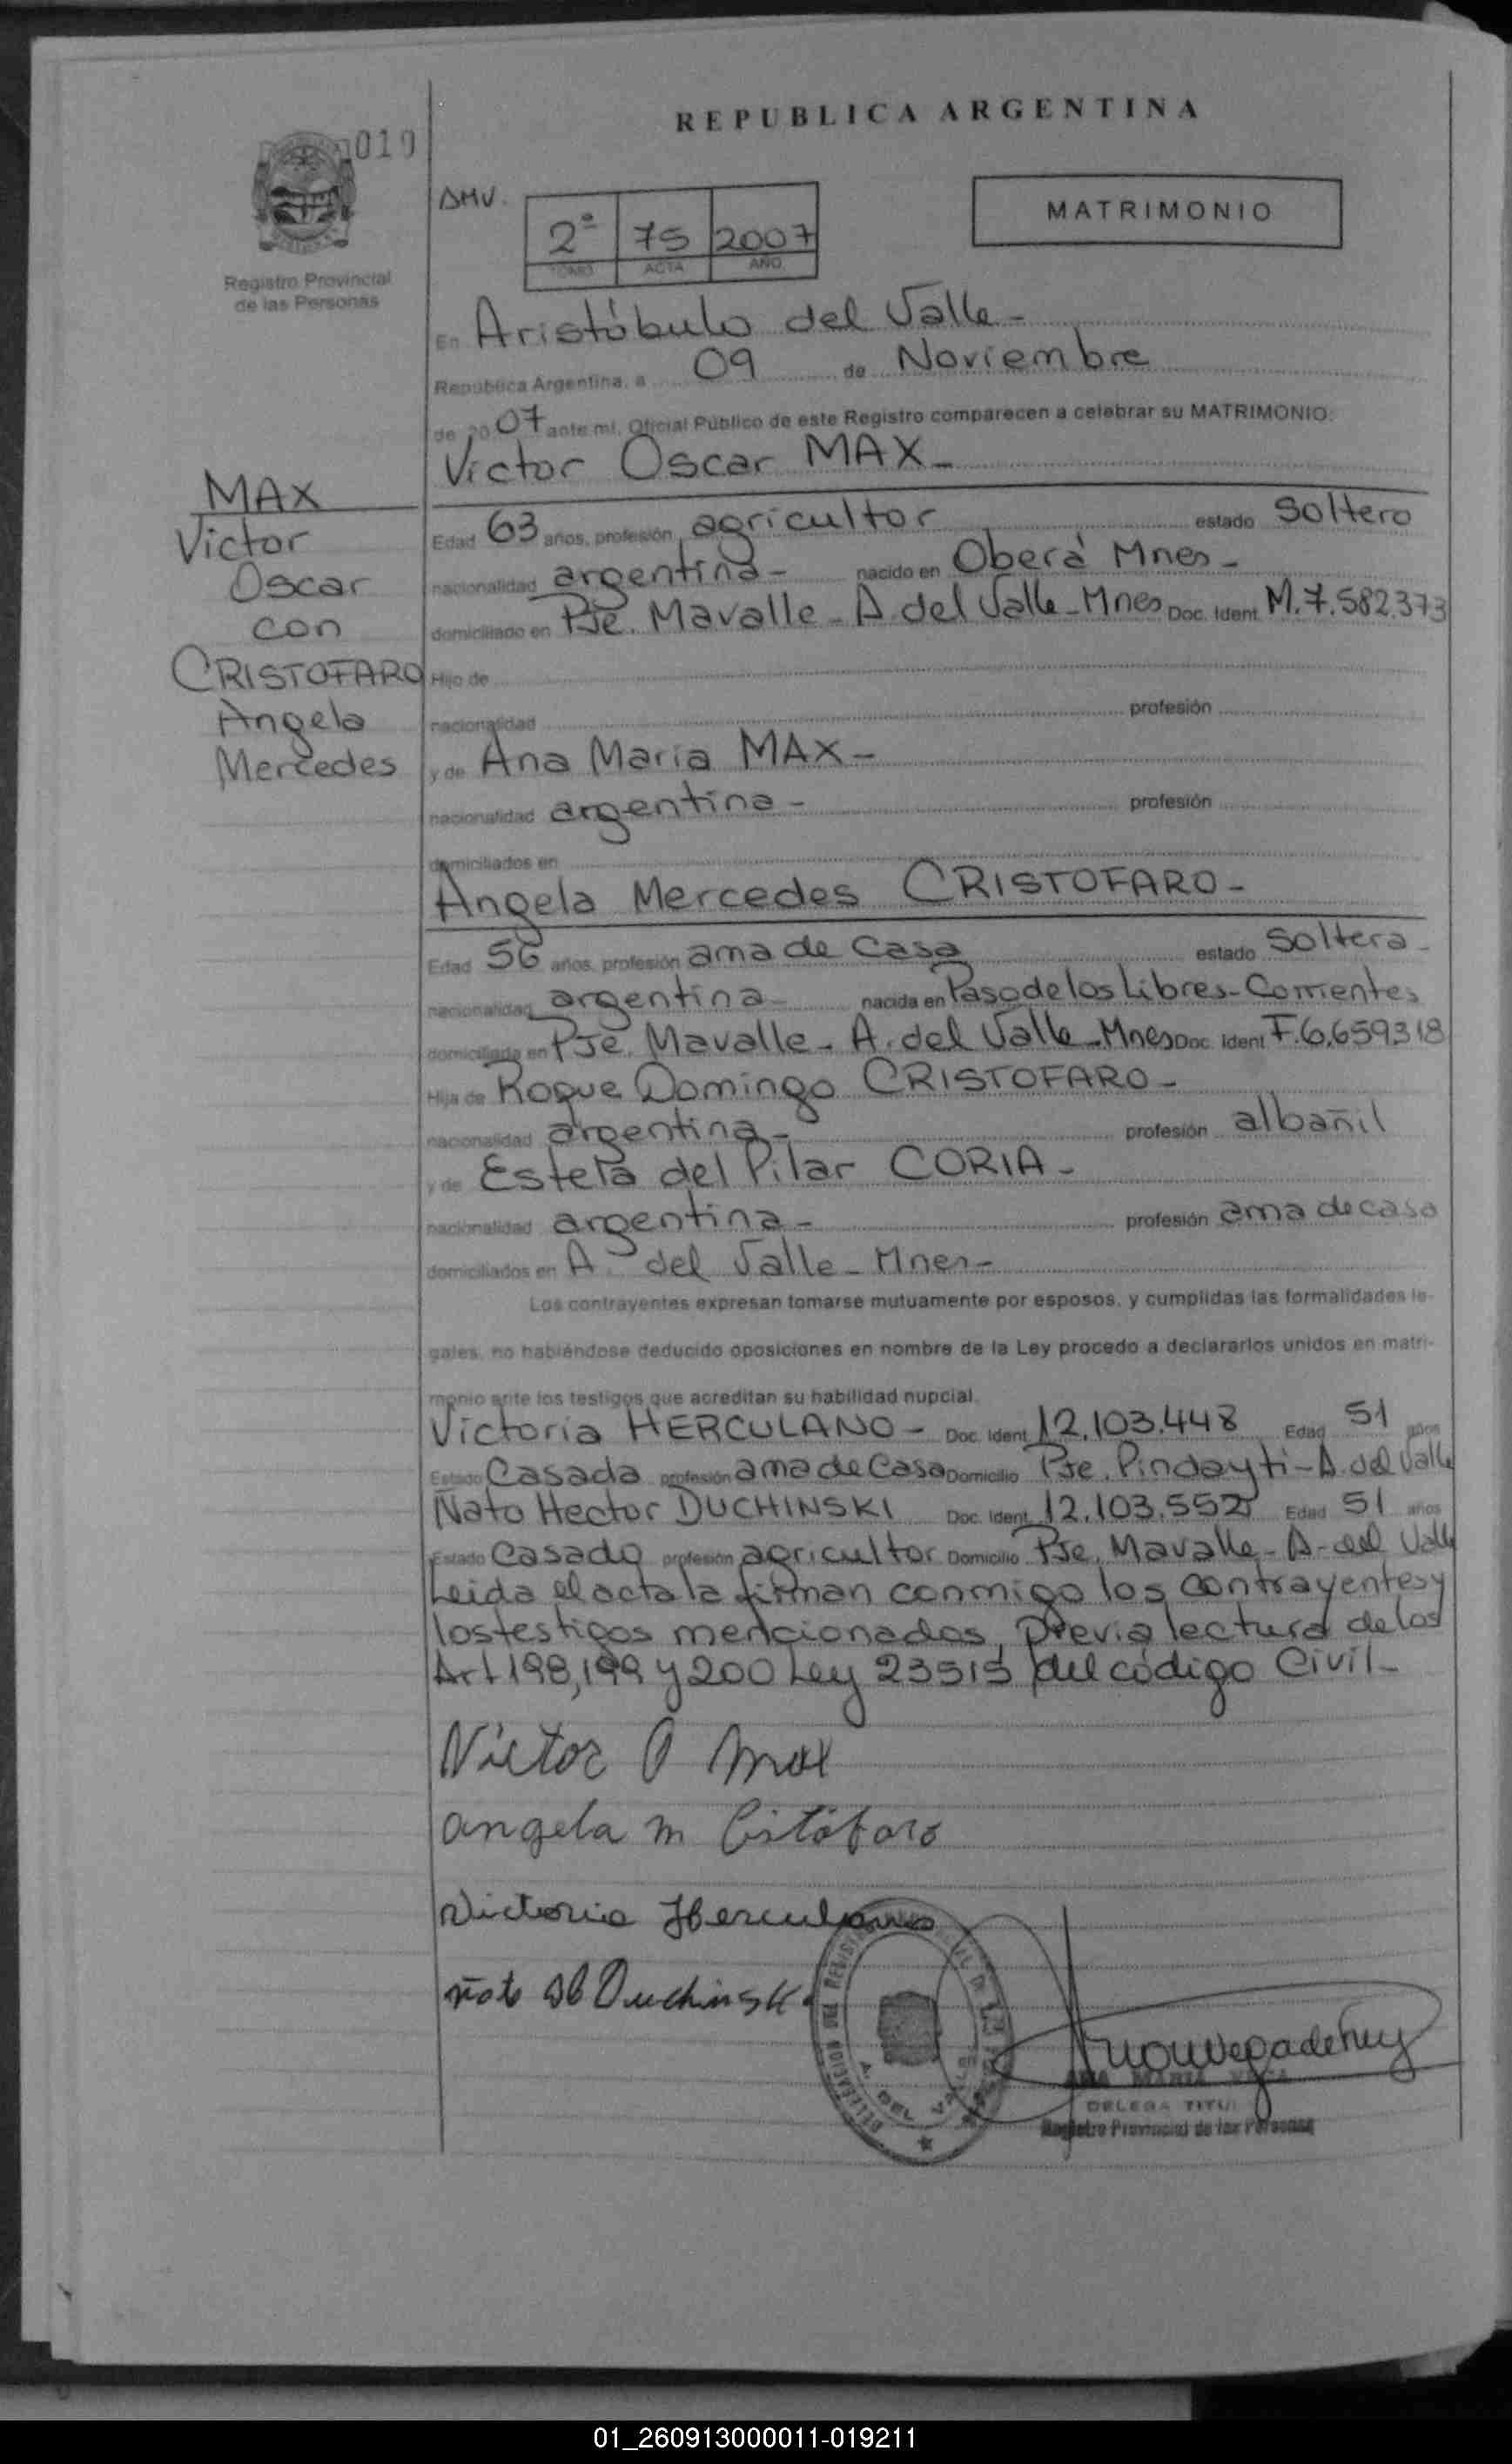 REPUBLICA ARGENTINA
019
DMV.
2ª 75 2007
TOMO ACTA AÑO
MATRIMONIO
Registro Provincial
de las Personas
En Aristóbulo del Valle -
República Argentina, a 09 de Noviembre
de 2007 ante mí, Oficial Público de este Registro comparecen a celebrar su MATRIMONIO:
Victor Oscar MAX -
MAX
Victor
Oscar
con
CRISTOFARO
Angela
Mercedes
Edad 63 años, profesión agricultor estado Soltero
nacionalidad argentina - nacido en Oberá Mnes -
domiciliado en Pje. Mavalle - A. del Valle - Mnes Doc. Ident. M.7.582.373
Hijo de
nacionalidad profesión
y de Ana Maria MAX -
nacionalidad argentina - profesión
domiciliados en
Angela Mercedes CRISTOFARO -
Edad 56 años, profesión ama de casa estado Soltera -
nacionalidad argentina - nacida en Paso de los Libres - Corrientes
domiciliada en Pje. Mavalle - A. del Valle - Mnes Doc. Ident F.6.659.318
Hija de Roque Domingo CRISTOFARO -
nacionalidad argentina - profesión albañil
y de Estela del Pilar CORIA -
nacionalidad argentina - profesión ama de casa
domiciliados en A. del Valle - Mnes -
Los contrayentes expresan tomarse mutuamente por esposos, y cumplidas las formalidades le-
gales, no habiéndose deducido oposiciones en nombre de la Ley procedo a declararlos unidos en matri-
monio ante los testigos que acreditan su habilidad nupcial.
Victoria HERCULANO - Doc. Ident. 12.103.448 Edad 51 años
Estado Casada profesión ama de Casa Domicilio Pje. Pindayti - A. del Valle
Ñato Hector DUCHINSKI Doc. Ident. 12.103.552 Edad 51 años
Estado Casado profesión agricultor Domicilio Pje. Mavalle - A. del Valle
Leida el acta la firman conmigo los contrayentes y
los testigos mencionados, previa lectura de los
Art 198, 199 y 200 Ley 23515 del código Civil -
Victor O Max
angela m Cristófaro
Victoria Herculano
ñato H Duchinski
A. DEL VALLE
ANA MARIA VEGA
DELEGA TITU
Registro Provincial de las Personas
01_260913000011-019211